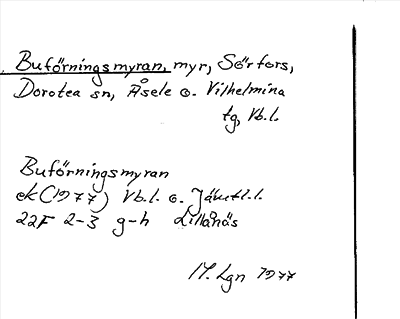 Buförningsmyran, myr, Sörfors,
Dorotea sn, Åsele o. Vilhelmina
tg, Vb.l.
Buförningsmyran
ek (1977) Vb.l. o. Jämtl.l.
22F 2-3 g-h Lillånäs
M. Lgn 1977